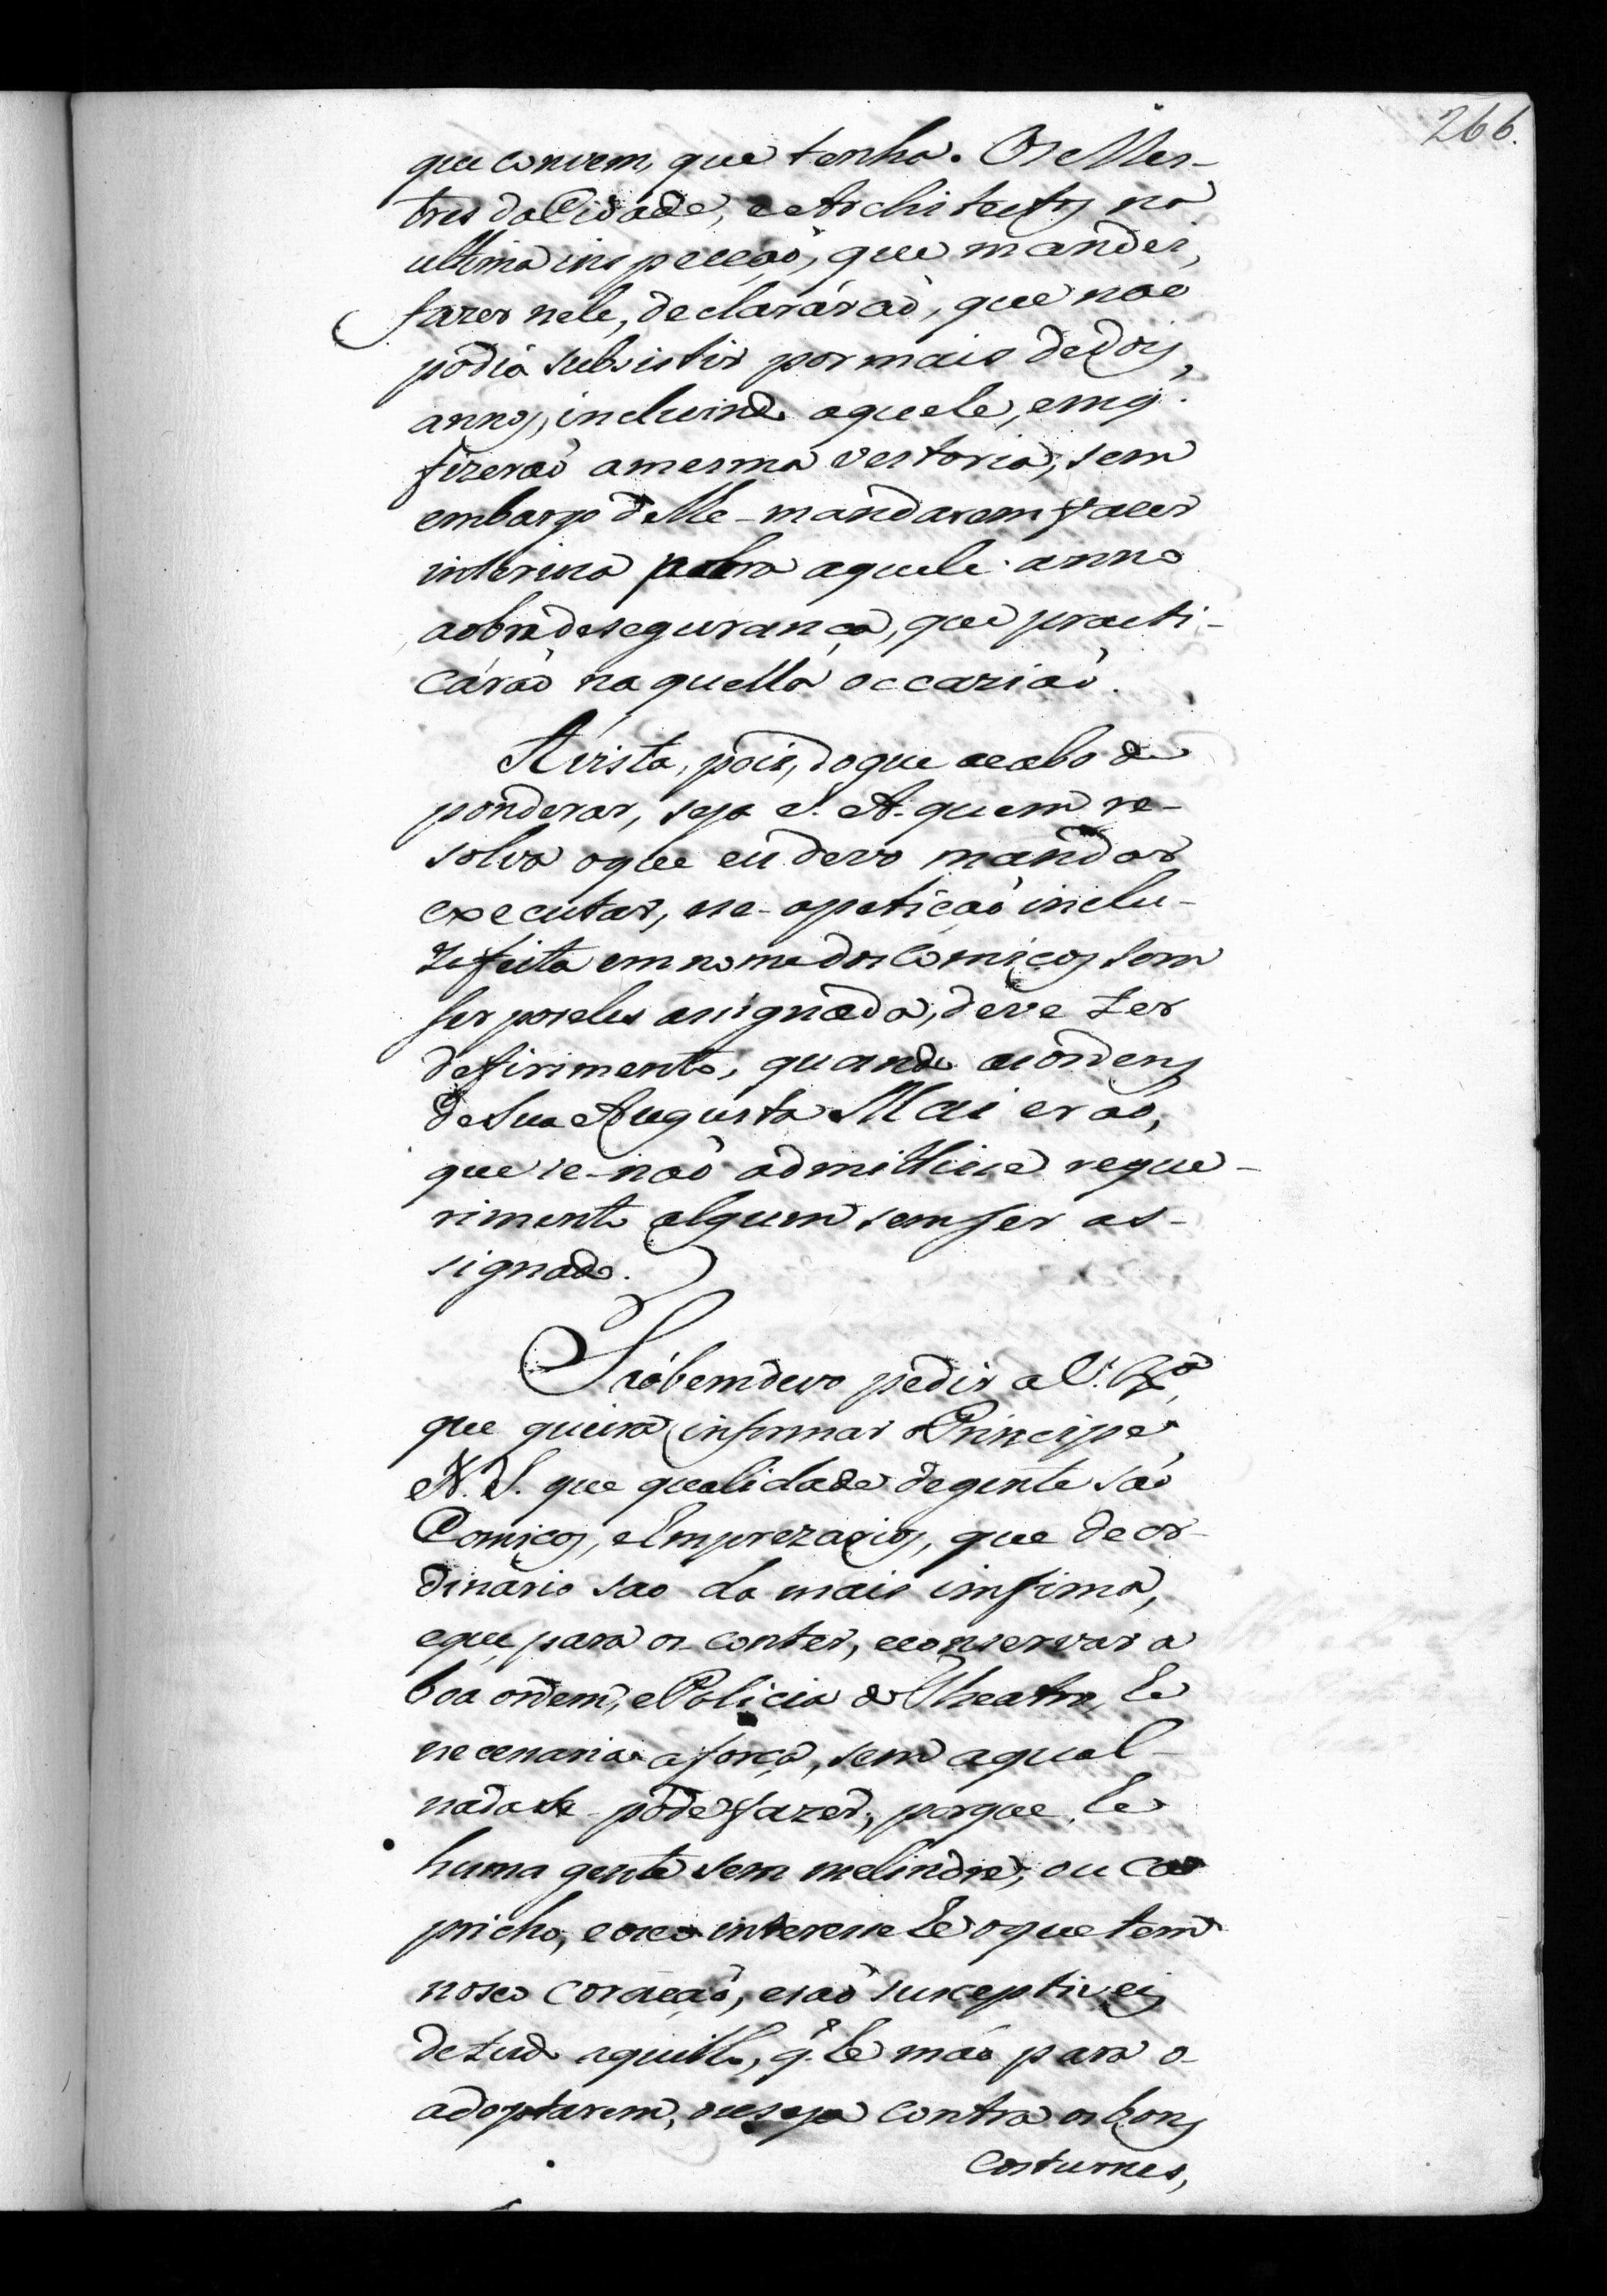 266.
que convem, que tenha. Os Mes-
tres da Cidade, e Architectos na
ultima inspecçaõ, que mandei,
fazer nele, declaráraõ, que nao
podia subsistir por mais de dois,
annos, incluindo aquele, em q.
fizeraõ a mesma vestoria, sem
embargo de lhe-mandarem fazer
interina para aquele anno
a obra de segurança, que practi-
cáraõ naquella occaziaõ.
Á vista, pois, do que acabo de
ponderar, seja S. A. quem re-
solva o que eu devo mandar
executar, e se-a petiçaõ inclu-
za feita em nome dos Comicos sem
ser por eles assignada, deve ter
defirimento, quando as ordens
de Sua Augusta Mai eraõ,
que se-naõ admittisse reque-
rimento algum sem ser as-
signado.
Taõbem devo pedir a V. Exª,
que queira informar o Principe
N. S. que qualidade de gente saõ
Comicos, e Emprezarios, que de or-
dinario sao da mais imfima,
e que, para os-conter, e conservar a
boa ordem, e Policia do Theatro, he
necessaria a força, sem a qual-
nada se-póde fazer, porque he
huma gente sem melindre, ou ca
pricho, e o seo interesse he o que tem
no seo coraçaõ, e saõ susceptiveis
de tudo aquillo, q. he máo para o-
adoptarem, ou seja contra os bons
costumes,